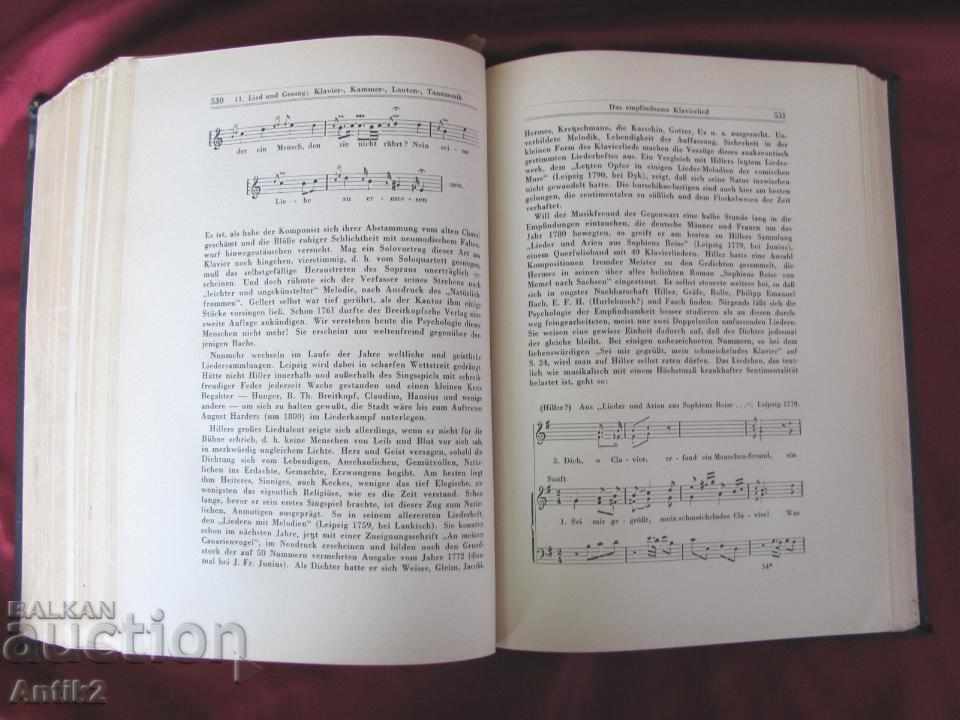 530 11. Lied und Gesang; Klavier-, Kammer-, Lauten-, Tanzmusik
der ein Mensch, den sie nicht rührt? Nein sei-ne
Lie- be zu er-mes-sen
Es ist, als habe der Komponist sich ihrer Abstammung vom alten Choral
geschämt und die Blöße ruhiger Schlichtheit mit neumodischem Falten-
wurf hinwegzutäuschen versucht. Mag ein Solovortrag dieser Art am
Klavier noch hingehen, vierstimmig, d. h. vom Soloquartett gesungen,
muß das selbstgefällige Heraustreten des Soprans unerträglich er-
scheinen. Und doch rühmte sich der Verfasser seines Strebens nach
„leichter und ungekünstelter“ Melodie, nach Ausdruck des „Natürlich
frommen“. Gellert selbst war tief gerührt, als der Kantor ihm einige
Stücke vorsingen ließ. Schon 1761 durfte der Breitkopfsche Verlag eine
zweite Auflage ankündigen. Wir verstehen heute die Psychologie dieser
Menschen nicht mehr! Sie erscheint uns weltenfremd gegenüber der-
jenigen Bachs.
Nunmehr wechseln im Laufe der Jahre weltliche und geistliche
Liedersammlungen. Leipzig wird dabei in scharfen Wettstreit gedrängt
Hätte nicht Hiller innerhalb und außerhalb des Singspiels mit schreib-
freudiger Feder jederzeit Wache gestanden und einen kleinen Kreis
Begabter — Hunger, B. Th. Breitkopf, Claudius, Hansius und wenige
andere — um sich zu halten gewußt, die Stadt wäre bis zum Auftreten
August Harders (um 1800) im Liederkampf unterlegen.
Hillers großes Liedtalent zeigte sich allerdings, wenn er nicht für die
Bühne schrieb, d. h. keine Menschen von Leib und Blut vor sich sah,
in merkwürdig ungleichem Lichte. Herz und Geist versagen, sobald die
Dichtung sich vom Lebendigen, Anschaulichen, Gemütvollen, Natür-
lichen ins Erdachte, Gemachte, Erzwungene begibt. Am besten liegt
ihm Heiteres, Sinniges, auch Keckes, weniger das tief Elegische, am
wenigsten das eigentlich Religiöse, wie es die Zeit verstand. Schon
lange, bevor er sein erstes Singspiel brachte, ist dieser Zug zum Natür-
lichen, Anmutigen ausgeprägt. So in seinem allerersten Liederheft
den „Liedern mit Melodien“ (Leipzig 1759, bei Lankisch). Sie konnten
im nächsten Jahre, jetzt mit einer Zueignungsschrift „An meinen
Canarienvogel“, im Neudruck erscheinen und bilden noch den Grund-
stock der auf 50 Nummern vermehrten Ausgabe vom Jahre 1772 (dies-
mal bei J. Fr. Junius). Als Dichter hatte er sich Weisse, Gleim, Jacobi
Das empfindsame Klavierlied 531
Hermes, Kretzschmann, die Karschin, Gotter, Es u. a. ausgesucht. Un-
verbildete Melodik, Lebendigkeit der Auffassung, Sicherheit in der
kleinen Form des Klavierlieds machen die Vorzüge dieses anakreontisch
gestimmten Liederheftes aus. Ein Vergleich mit Hillers letztem Lieder-
werk, dem „Letzten Opfer in einigen Lieder-Melodien der comischen
Muse“ (Leipzig 1790, bei Dyk), zeigt, daß sich seine Natur inzwischen
nicht gewandelt hatte. Die burschikoslustigen sind auch hier am besten
gelungen, die empfindsamen sind zu sehr dem Floskelwesen der Zeit
verhaftet.
Will der Musikfreund der Gegenwart eine halbe Stunde lang in die
Empfindungen eintauchen, die deutsche Männer und Frauen um das
Jahr 1780 bewegten, so greife er am besten zu Hillers Sammlung
„Lieder und Arien aus Sophiens Reise“ (Leipzig 1779, bei Junius),
einem Querfoliobaud mit 49 Klavierliedern. Hiller hatte eine Anzahl
Kompositionen fremder Meister zu den Gedichten gesammelt, die
Hermes in seinen über alles beliebten Roman „Sophiens Reise von
Memel nach Sachsen“ eingestreut. Er selbst steuerte weitere bei, so daß
sich in engster Nachbarschaft Hiller, Gräfe, Rolle, Philipp Emanuel
Bach, E. F. H. (Hurlebusch?) und Fasch finden. Nirgends läßt sich die
Psychologie der Empfindsamkeit besser studieren als an diesen durch-
weg feingearbeiteten, meist nur zwei Doppelzeilen umfassenden Liedern.
Sie weisen eine gewisse Einheit dadurch auf, daß des Dichter jedesmal
der gleiche bleibt. Bei einigen unbezeichneten Nummern, so bei dem
liebenswürdigen „Sei mir gegrüßt, mein schmeichelndes Klavier“ auf
S. 34, wird man auf Hiller selbst raten dürfen. Das Liedchen, das text-
lich wie musikalisch mit einem Höchstmaß krankhafter Sentimentalität
belastet ist, geht so:
(Hiller?) Aus „Lieder und Arien aus Sophiens Reise . . .“. Leipzig 1779.
3. Dich, o Cla-vier, er-fand ein Menschen-freund, ein
Sanft
1. Sei mir ge-grüßt, mein schmeichelndes Cla-vier! Was
34*
BALKAN
auction
Antik2